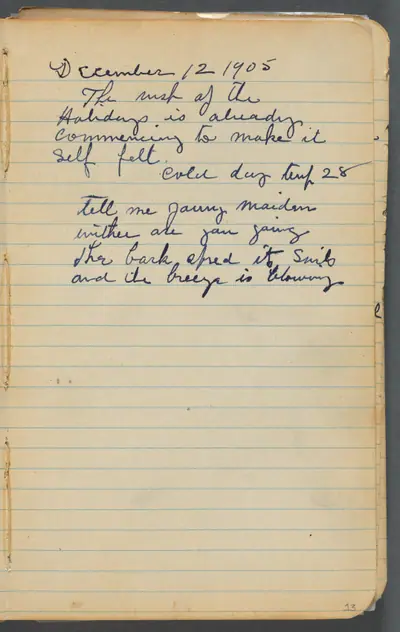 December 12 1905
The rush of the
Holidays is already
commencing to make it
self felt.
Cold day temp 28
tell me young maiden
wither are you going
the bark spred its Sails
and the breeze is blowing
13